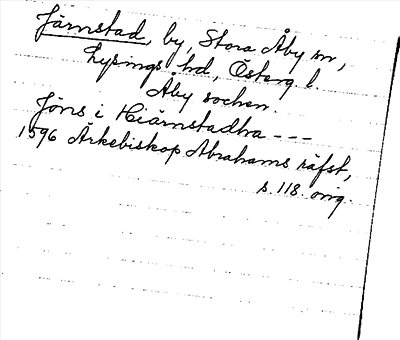 Järnstad, by, Stora Åby sn,
Lysings hd, Österg l.
Åby socken.
Jöns i Hiärnstadha ---
1596 Ärkebiskop Abrahams räfst,
s. 118. orig.